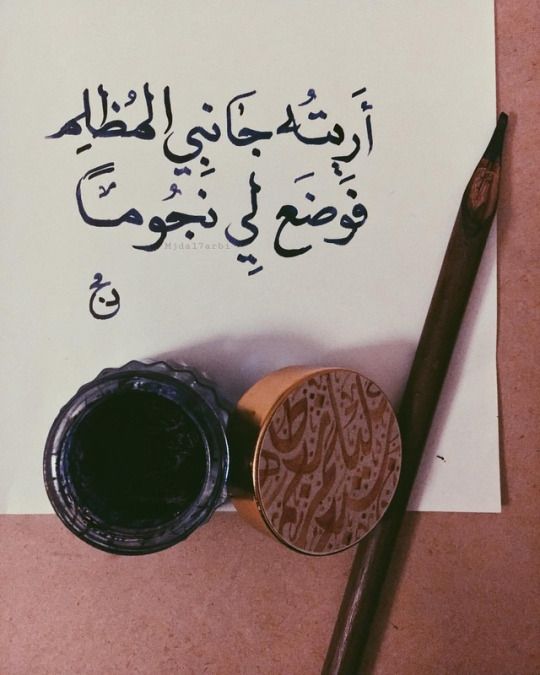 أَريتُه جَانِبِي المُظلِم
فَوَضَع لِي نجُوماً
Mjda17arbi